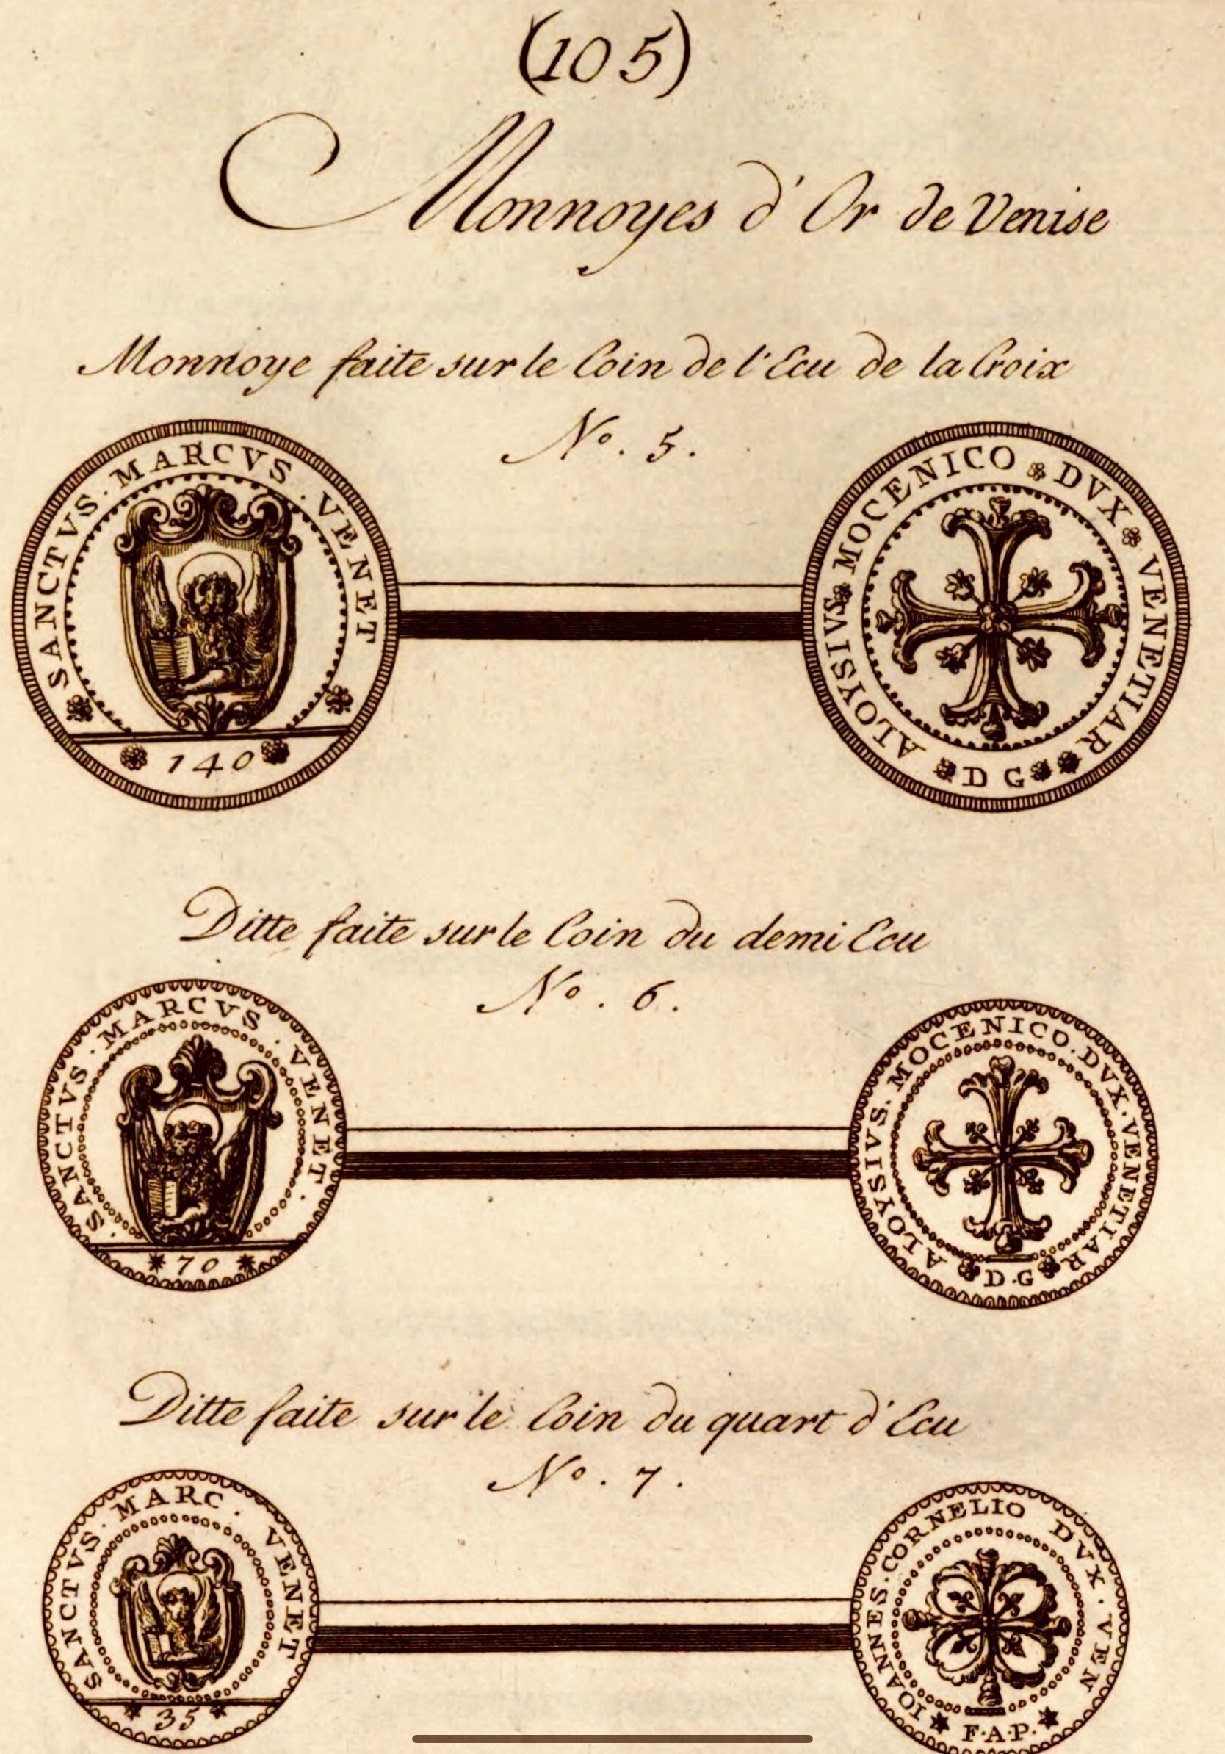 (105)
Monnoyes d'Or de Venise
Monnoye faite sur le Coin de l'Ecu de la Croix
No. 5.
SANCTVS · MARCVS · VENET
140
ALOYSIVS MOCENICO DVX VENETIAR
D G
Ditte faite sur le Coin du demi Ecu
No. 6.
· SANCTVS · MARCVS · VENET ·
70
ALOYSIVS · MOCENICO · DVX · VENETIAR
D · G
Ditte faite sur le Coin du quart d'Ecu
No. 7.
SANCTVS · MARC · VENET
35
IOANNES · CORNELIO DVX · VEN
F · A · P ·